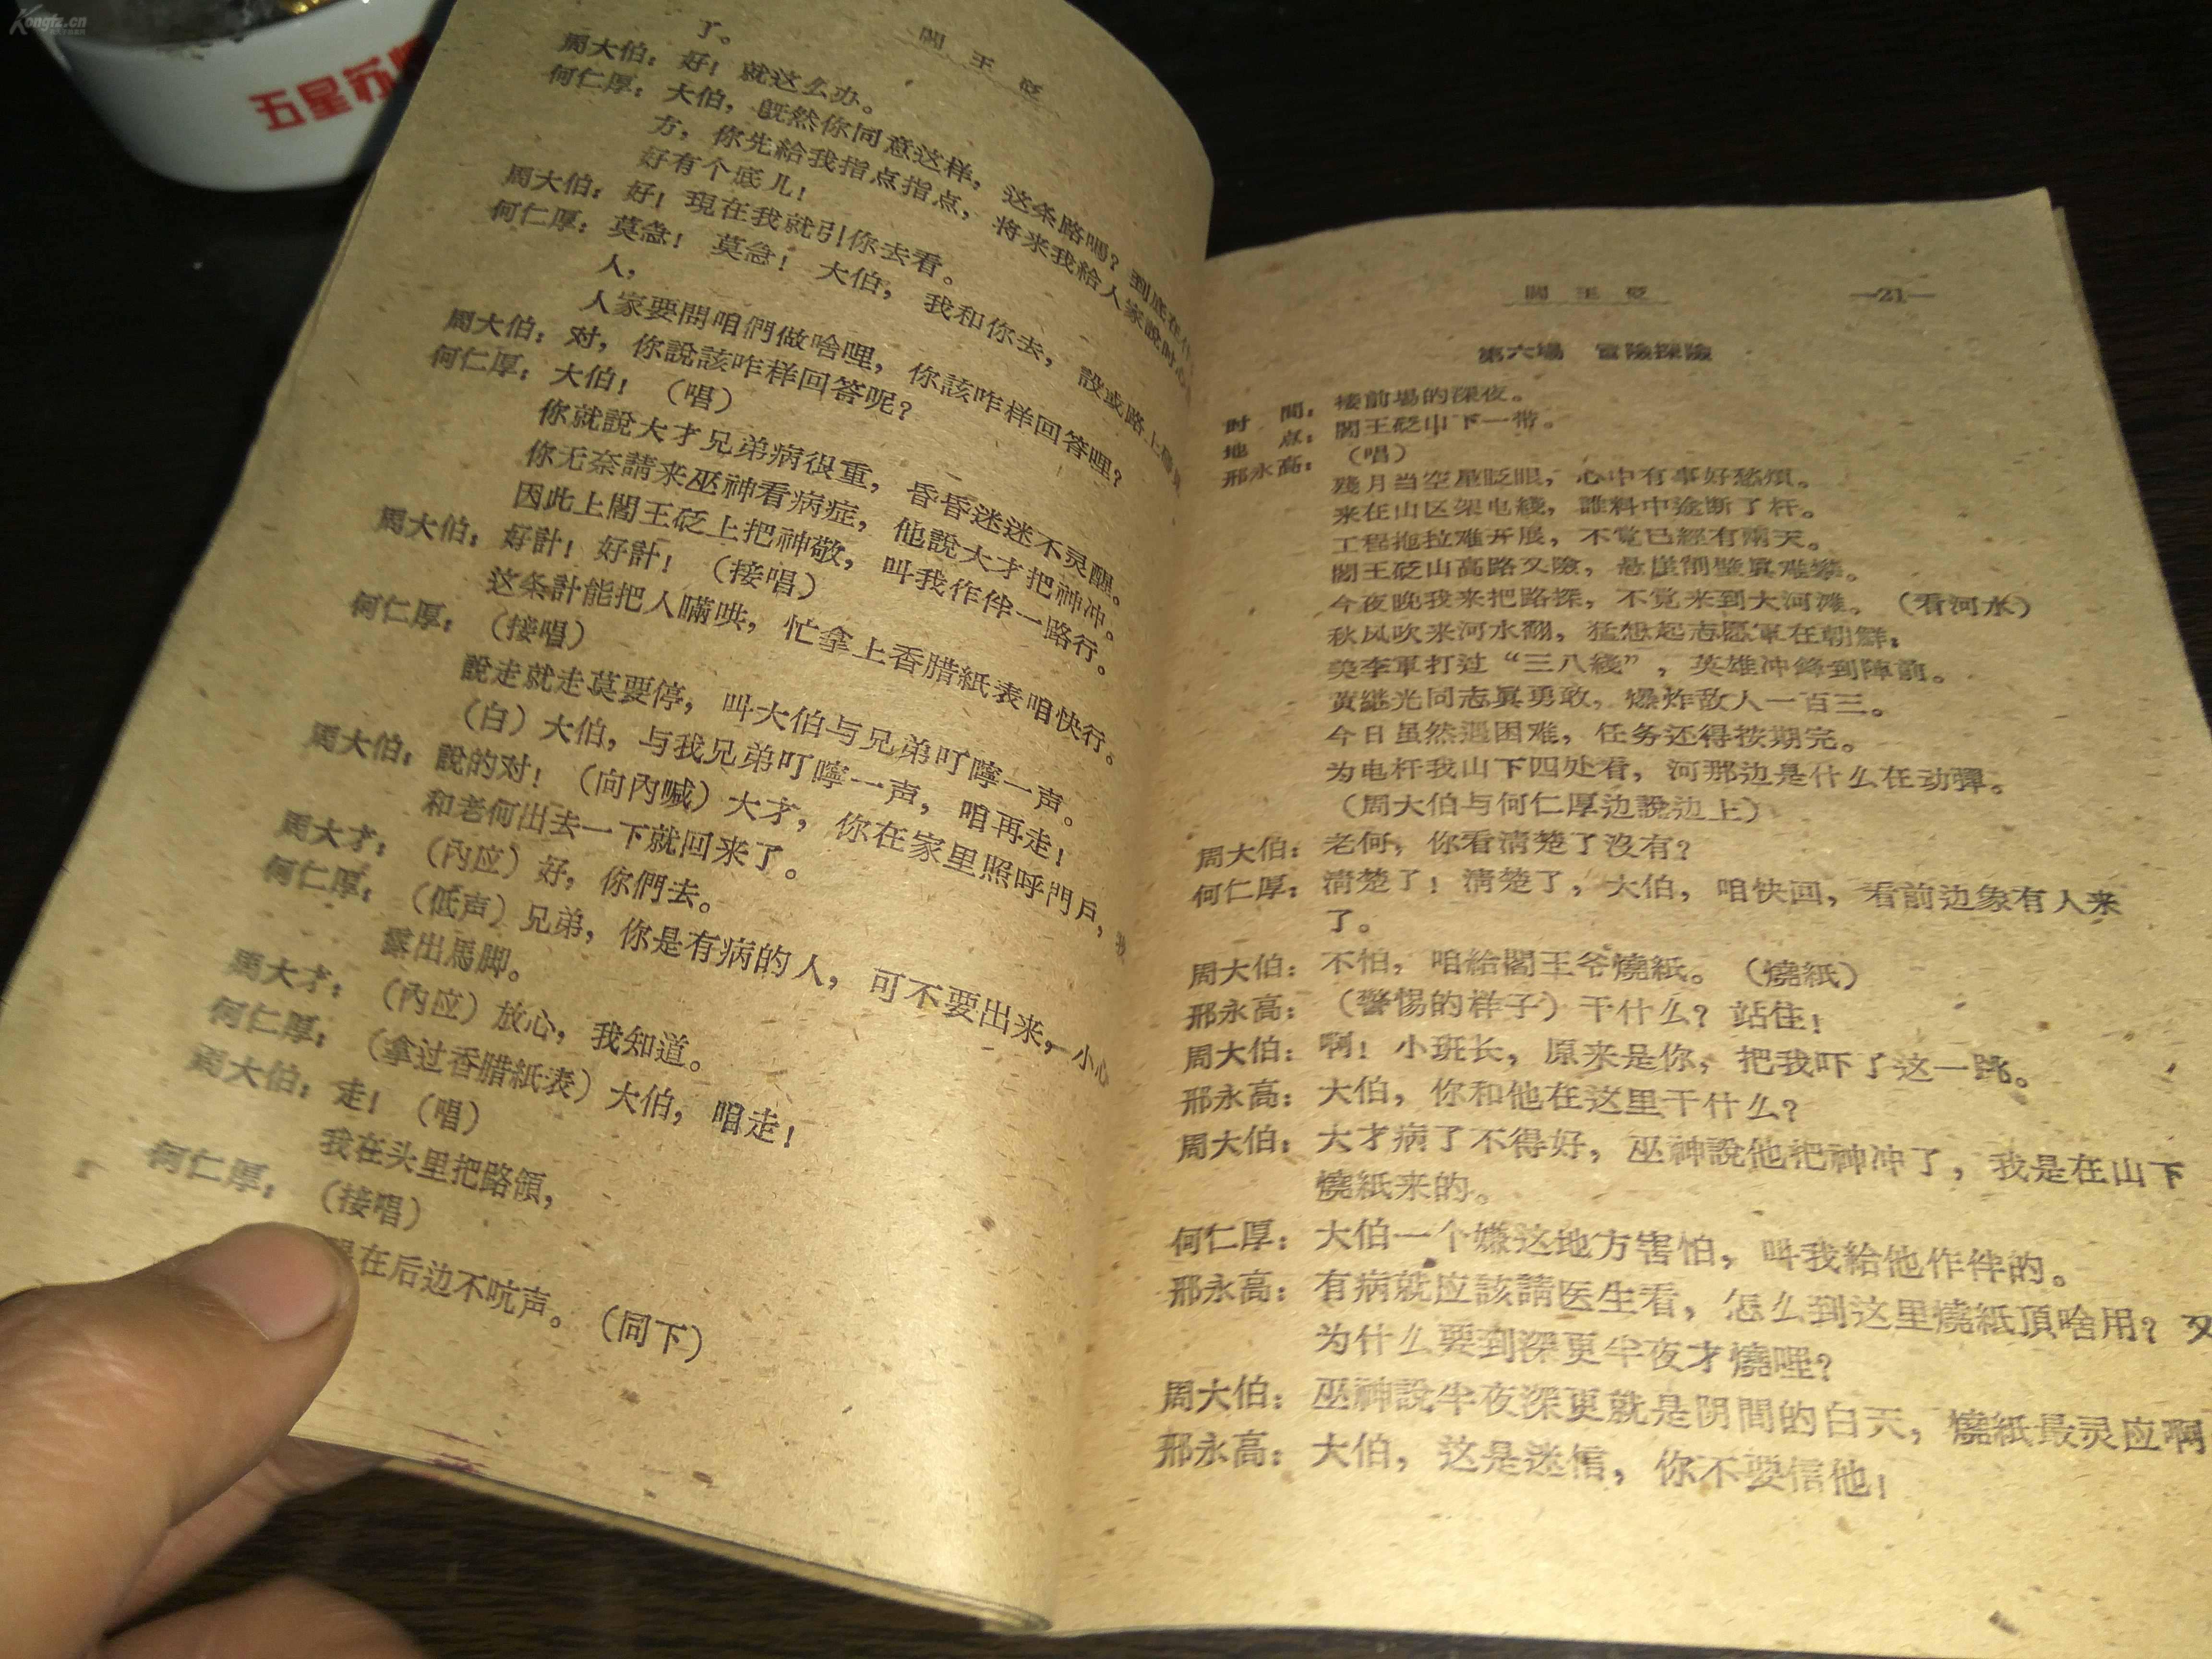 Kongfz.cn
五星苏
閻王砭
了。
周大伯：好！就这么办。
何仁厚：大伯，既然你同意这样，这条路嗎？到底在什
方，你先給我指点指点，将来我給人家說时心
好有个底儿！
周大伯：好！現在我就引你去看。
何仁厚：莫急！莫急！大伯，我和你去，設或路上
人，
人家要問咱們做啥哩，你該咋样回答哩？
周大伯：对，你說該咋样回答呢？
何仁厚：大伯！（唱）
你就說大才兄弟病很重，昏昏迷迷不灵醒。
你无奈請来巫神看病症，他說大才把神冲。
因此上閻王砭上把神敬，叫我作伴一路行。
周大伯：好計！好計！（接唱）
这条計能把人瞞哄，忙拿上香腊紙表咱快行。
何仁厚：（接唱）
說走就走莫要停，叫大伯与兄弟叮嚀一声。
（白）大伯，与我兄弟叮嚀一声，咱再走！
周大伯：說的对！（向內喊）大才，你在家里照呼門戶，我
和老何出去一下就回来了。
周大才：（內应）好，你們去。
何仁厚：（低声）兄弟，你是有病的人，可不要出来，小心
露出馬脚。
周大才：（內应）放心，我知道。
何仁厚：（拿过香腊紙表）大伯，咱走！
周大伯：走！（唱）
我在头里把路領，
何仁厚：（接唱）
在后边不吭声。（同下）
閻王砭 —21—
第六場 冒險探險
时間：接前場的深夜。
地点：閻王砭山下一带。
邢永高：（唱）
殘月当空星眨眼，心中有事好愁煩。
来在山区架电綫，誰料中途断了杆。
工程拖拉难开展，不觉已經有兩天。
閻王砭山高路又險，悬崖削壁眞难攀。
今夜晚我来把路探，不覚来到大河滩。（看河水）
秋风吹来河水翻，猛想起志愿軍在朝鮮；
美李軍打过“三八綫”，英雄冲鋒到陣前。
黃継光同志眞勇敢，爆炸敌人一百三。
今日虽然遇困难，任务还得按期完。
为电杆我山下四处看，河那边是什么在动彈。
（周大伯与何仁厚边說边上）
周大伯：老何，你看清楚了沒有？
何仁厚：清楚了！清楚了，大伯，咱快回，看前边象有人来
了。
周大伯：不怕，咱給閻王爷燒紙。（燒紙）
邢永高：（警惕的样子）干什么？站住！
周大伯：啊！小班长，原来是你，把我吓了这一跳。
邢永高：大伯，你和他在这里干什么？
周大伯：大才病了不得好，巫神說他把神冲了，我是在山下
燒紙来的。
何仁厚：大伯一个嫌这地方害怕，叫我給他作伴的。
邢永高：有病就应該請医生看，怎么到这里燒紙頂啥用？又
为什么要到深更半夜才燒哩？
周大伯：巫神說半夜深更就是阴間的白天，燒紙最灵应啊
邢永高：大伯，这是迷信，你不要信他！